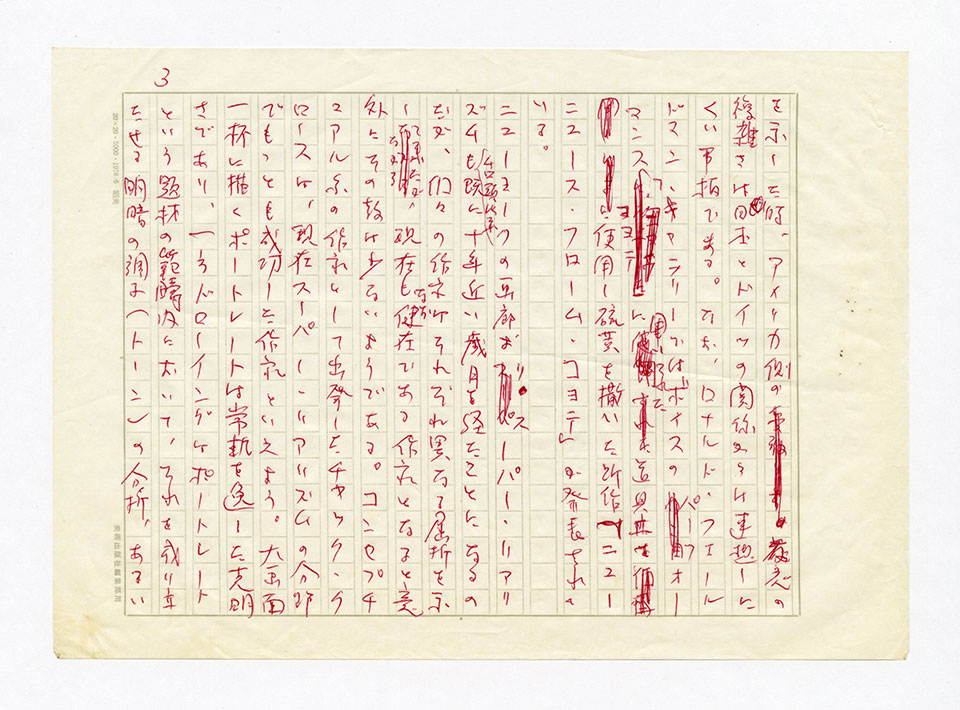 3
を示した時、アメリカ側の教意の
複雑さは日本とドイツの関係からは連想しに
くい目的である。なお、ロナルド・フェール
ドマン・ギャラリーではボイスのパーフォー
マンス「コヨーテ」に用いられた道具並
使用し硫黄を撒いた新作「ニュー
ニュース・フローム・コヨーテ」が発表されて
いる。
ニューヨークの画廊がスーパー・リアリ
ズムも台頭以来既に十年近い歳月を経たことになるの
だが、個々の作家はそれぞれ異なる屈折を示
し、現在も健在である作家となると意
外にその数は少ないようである。コンセプチ
ュアル系の作家として出発したチャック・ク
ロースは、現在スーパー・リアリズムの分野
でもっとも成功した作家といえよう。大画面
一杯に描くポートレートは常軌を逸した克明
さであり、一方ドローイングはポートレート
という題材の範疇内において、それを成り立
たせる明暗の調子(トーン)の分析、あるい
20×20・1000・1976.6
美術出版社編集部用